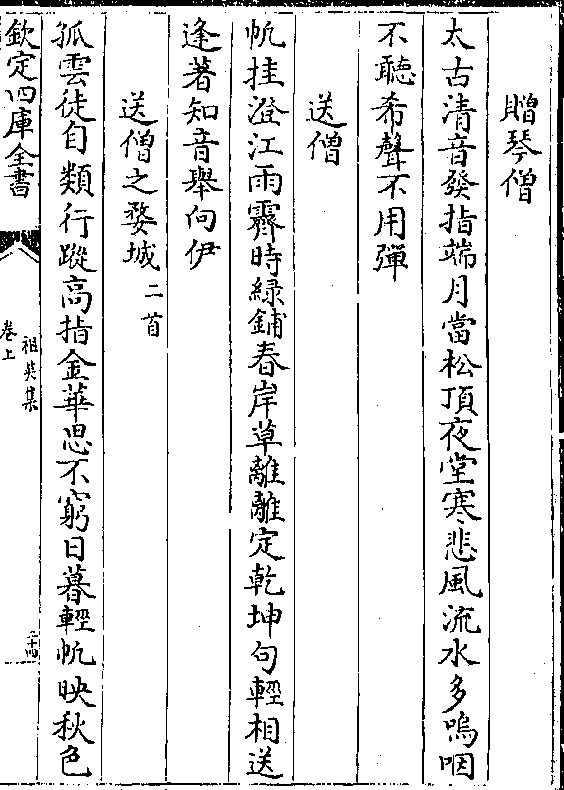 贈琴僧
太古清音發指端月當松頂夜堂寒悲風流水多嗚咽
不聽希聲不用彈
送僧
帆挂澄江雨霽時綠鋪春岸草離離定乾坤句輕相送
逢著知音舉向伊
送僧之婺城二首
孤雲徒自類行蹤高指金華思不窮日暮輕帆映秋色
欽定四庫全書
祖英集
卷上
二十四